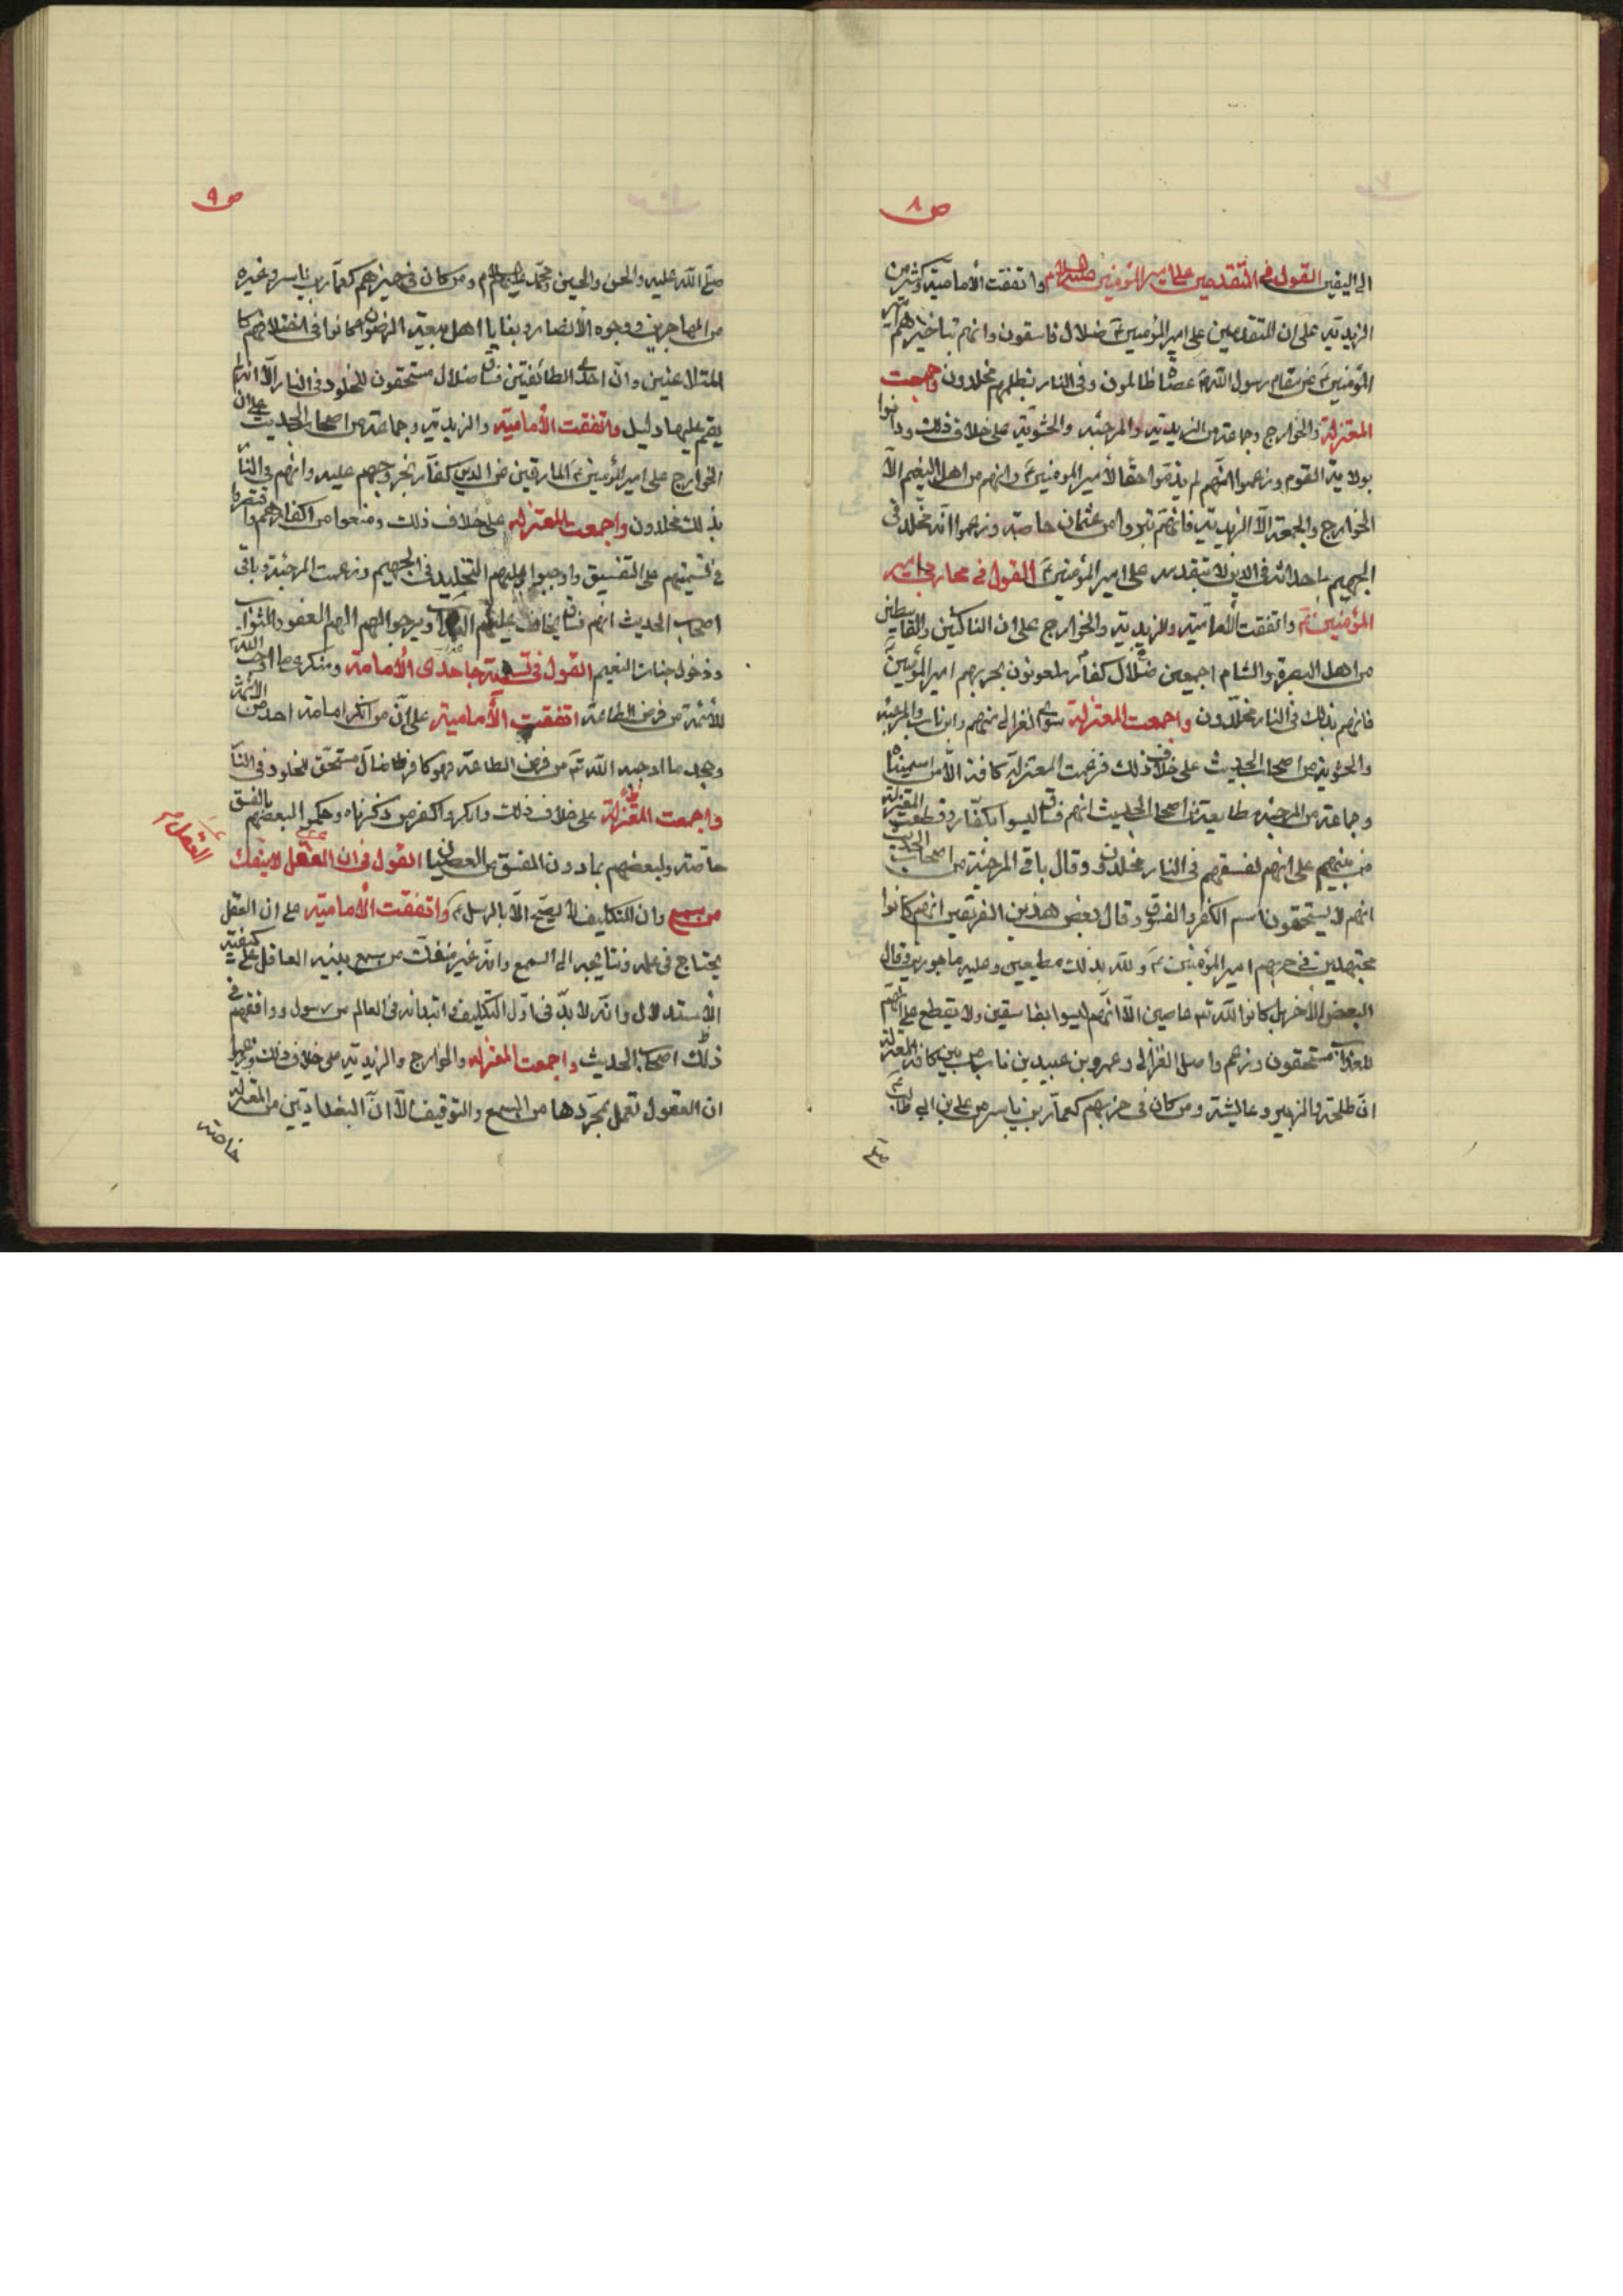 ص ٨
الى اليقين القول فى المتقدمين على امير المؤمنين عليه السلام واتفقت الأمامية وكثير من
الزيدية على ان المتقدمين على امير المؤمنين ع ضلال فاسقون وانهم بتأخيرهم امير
المؤمنين ع عن مقام رسول الله ص عصاة ظالمون وفى النار بظلمهم مخلدون واجمعت
المعتزلة والخوارج وجماعة من الزيدية والمرجئه والحشوية على خلاف ذلك ودانوا
بولاية القوم وزعموا انهم لم يدفعوا حقا لأمير المؤمنين ع وانهم من اهل النعيم الا
الخوارج والجمعة الا الزيدية فانهم تبروا من عثمان خاصة وزعموا انه مخلد فى
الجحيم باحداثه فى الدين لا بتقدمه على امير المؤمنين ع القول فى محاربى امير
المؤمنين ع واتفقت الأمامية والزيدية والخوارج على ان الناكثين والقاسطين
من اهل البصرة والشام اجمعين ضلال كفار ملعونون بحربهم امير المؤمنين ع
فانهم بذلك فى النار مخلدون واجمعت المعتزلة سوى الغزالى منهم وابن باب والمرجئه
والحشوية من اصحاب الحديث على خلاف ذلك فزعمت المعتزلة كافة الا من اسميناه
وجماعة من المرجئه وطايفة من اصحاب الحديث انهم فساق ليسوا بكفار وقطعت المعتزلة
من بينهم على انهم لفسقهم فى النار مخلدون وقال باقى المرجئة من اصحاب الحديث
انهم لا يستحقون اسم الكفر والفسوق وقال بعض هذين الفريقين انهم كانوا
مجتهدين فى حربهم امير المؤمنين ع ولله بذلك مطيعين وعليه ماجورين وقال
البعض الأخر بل كانوا لله تع عاصين الا انهم ليسوا بفاسقين ولا يقطع على انهم
للعذاب مستحقون وزعم واصل الغزالى وعمرو بن عبيد بن باب من بين كافة المعتزلة
ان طلحة والزبير وعايشة ومن كان فى حزبهم كعمار بن ياسر من على بن ابى طالب ع
ص ٩
صلى الله عليه والحسن والحسين ومحمد عليهم السلام ومن كان فى حيزهم كعمار بن ياسر وغيره
من المهاجرين ووجوه الأنصار وبقايا اهل بيعة الرضوان كانوا فى اختلافهم كا
المتلاعنين وان احدى الطائفتين فساق ضلال مستحقون للخلود فى النار الا انه لم
يقم عليها دليل واتفقت الأمامية والزيدية وجماعة من اصحاب الحديث على ان
الخوارج على امير المؤمنين ع المارقين عن الدين كفار بخروجهم عليه وانهم فى النار
بذلك مخلدون واجمعت المعتزله على خلاف ذلك ومنعوا من اكفارهم واقتصروا
فى تسميتهم على التفسيق واوجبوا عليهم التخليد فى الجحيم وزعمت المرجئة وباقى
اصحاب الحديث انهم فساق يخاف عليهم العذاب ويرجوا لهم العفو والثواب
ودخول جنات النعيم القول فى تسمية جاحدى الأمامة ومنكرى ما اوجب الله
للأئمة من فرض الطاعة اتفقت الأمامية على ان من انكر امامة احد من الأئمة
وجحد ما اوجبه الله تع من فرض الطاعة فهو كافر ضال مستحق للخلود فى النار
واجمعت المعتزلة على خلاف ذلك وانكروا كفر من ذكرناه وحكموا لبعضهم بالفسق
خاصة ولبعضهم بما دون الفسق من العصيان القول فى ان العقل لا ينفك
العقل
من سمع وان التكليف لا يصح الا بالرسل ع واتفقت الأمامية على ان العقل
يحتاج فى علمه ونتايجه الى السمع وانه غير منفك من سمع ينبه العاقل على كيفية
الأستدلال وانه لا بد فى اول التكليف وابتدائه فى العالم من رسول ووافقهم فى
ذلك اصحاب الحديث واجمعت المعتزله والخوارج والزيدية على خلاف ذلك وزعموا
ان العقول تعمل بمجردها من السمع والتوقيف الا ان البغداديين من المعتزله
خاصة